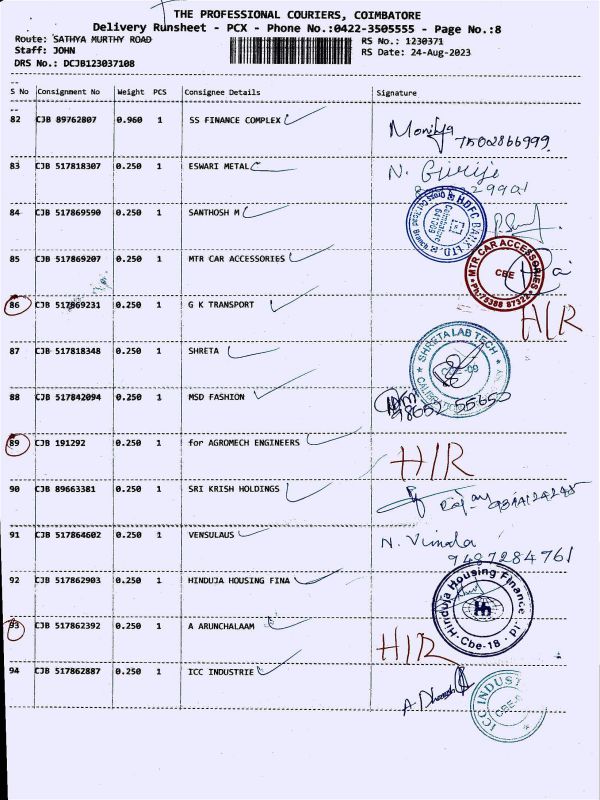 THE PROFESSIONAL COURIERS, COIMBATORE
Delivery Runsheet - PCX - Phone No.:0422-3505555 - Page No.:8
Route: SATHYA MURTHY ROAD RS No.: 1230371
Staff: JOHN RS Date: 24-Aug-2023
DRS No.: DCJB123037108
S No Consignment No Weight PCS Consignee Details Signature
82 CJB 89762807 0.960 1 SS FINANCE COMPLEX
7502866999
83 CJB 517818307 0.250 1 ESWARI METAL N.
84 CJB 517869590 0.250 1 SANTHOSH M
HDFC BANK LTD
85 CJB 517869207 0.250 1 MTR CAR ACCESSORIES
MTR CAR ACCESSORIES
CBE
86 CJB 517869231 0.250 1 G K TRANSPORT H/R
87 CJB 517818348 0.250 1 SHRETA
SHRETA LAB TECH
88 CJB 517842094 0.250 1 MSD FASHION
89 CJB 191292 0.250 1 for AGROMECH ENGINEERS H/R
90 CJB 89663381 0.250 1 SRI KRISH HOLDINGS
91 CJB 517864602 0.250 1 VENSULAUS N. Vimala
9487284761
92 CJB 517862903 0.250 1 HINDUJA HOUSING FINA
Hinduja Housing Finance
Cbe-18
93 CJB 517862392 0.250 1 A ARUNCHALAAM H/R
94 CJB 517862887 0.250 1 ICC INDUSTRIE
ICC INDUST